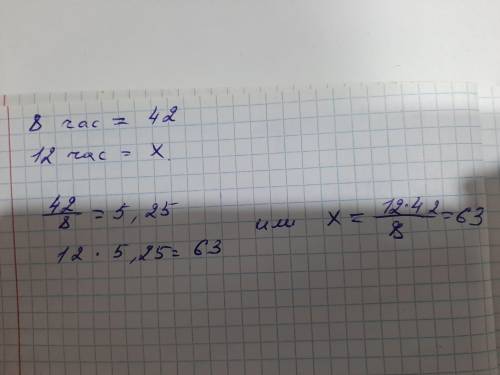 8 час = 42
12 час = X.
42/8 = 5,25
12 · 5,25 = 63
или X = 12·42/8 = 63